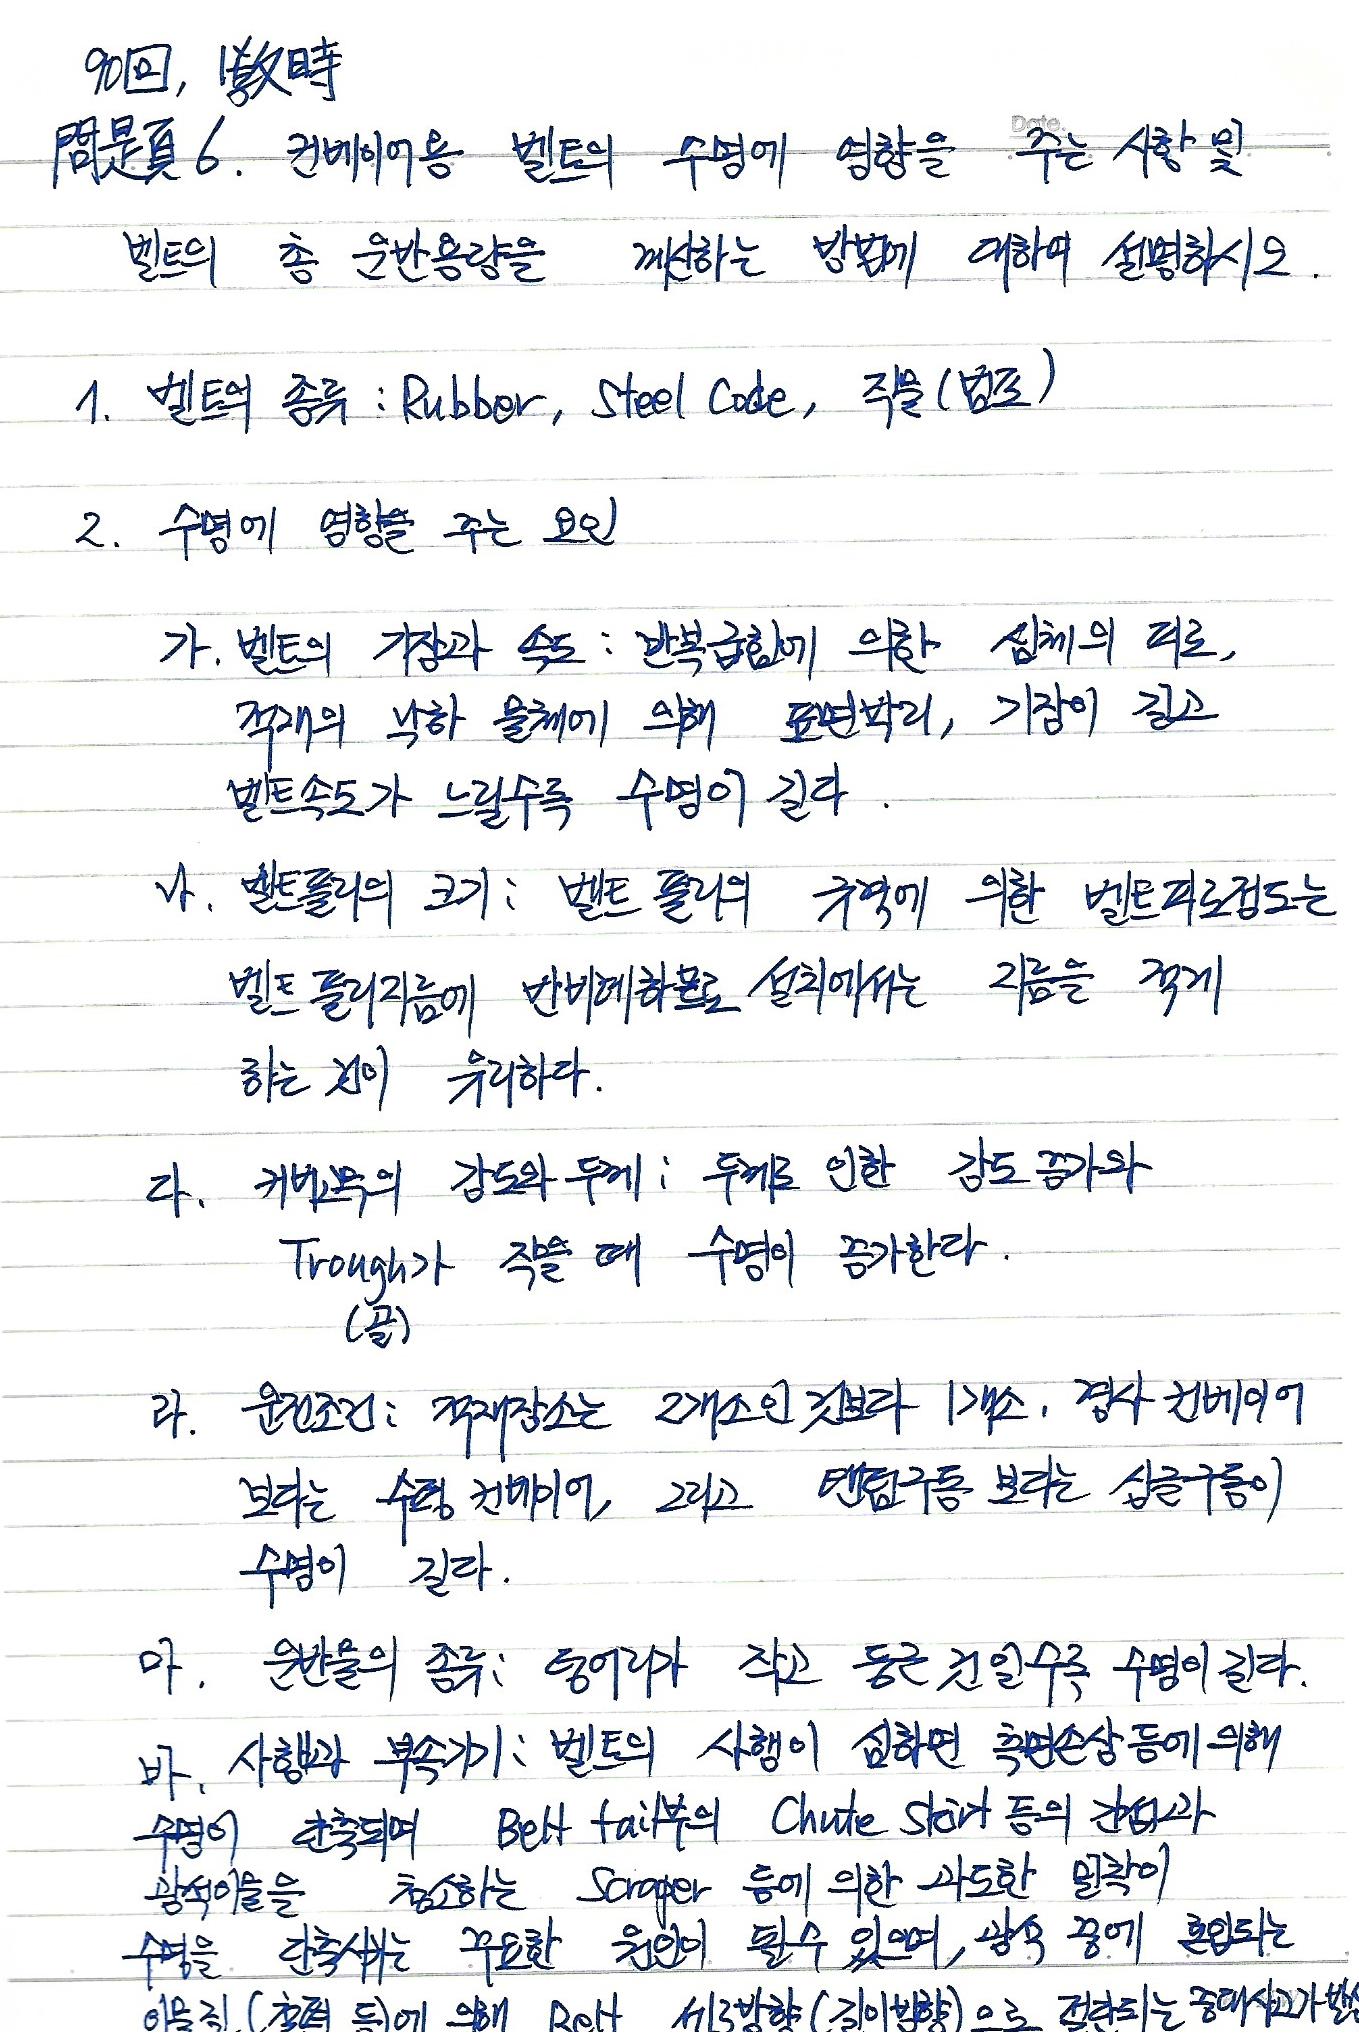 90回, 1敎時
Date.
問題 6. 컨베이어용 벨트의 수명에 영향을 주는 사항 및
벨트의 총 운반용량을 계산하는 방법에 대하여 설명하시오.
1. 벨트의 종류 : Rubber, Steel Code, 직물(범포)
2. 수명에 영향을 주는 요인
가. 벨트의 기장과 속도 : 반복굽힘에 의한 심체의 피로,
적재의 낙하 물체에 의해 표면박리, 기장이 길고
벨트속도가 느릴수록 수명이 길다.
나. 벨트풀리의 크기 : 벨트 풀리의 구역에 의한 벨트피로정도는
벨트 풀리지름에 반비례하므로 설치에서는 지름을 적게
하는 것이 유리하다.
다. 커버고무의 강도와 두께 : 두께로 인한 강도 증가와
Trough가 작을 때 수명이 증가한다.
(골)
라. 운전조건 : 적재장소는 2개소인 것보다 1개소, 경사 컨베이어
보다는 수평 컨베이어, 그리고 탠덤구동 보다는 싱글구동이
수명이 길다.
마. 운반물의 종류 : 덩어리가 작고 둥근 것 일수록 수명이 길다.
바. 사행과 부속기기 : 벨트의 사행이 심하면 측면손상 등에 의해
수명이 단축되며 Belt tail부의 Chute Skirt 등의 간섭과
광석이물을 청소하는 Scraper 등에 의한 과도한 밀착이
수명을 단축시키는 주요한 원인이 될수 있으며, 광석 중에 혼입되는
이물질(철편 등)에 의해 Belt 세로방향(길이방향)으로 절단되는 중대사고가